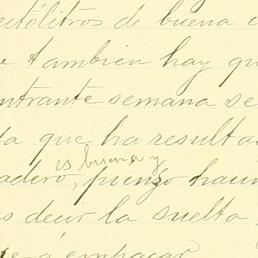 ectólitros de buena c
e tambien hay qu
ntrante semana se
la que ha resulta
es buena y
adero, pienso haci
s decir la suelta
e á empacar